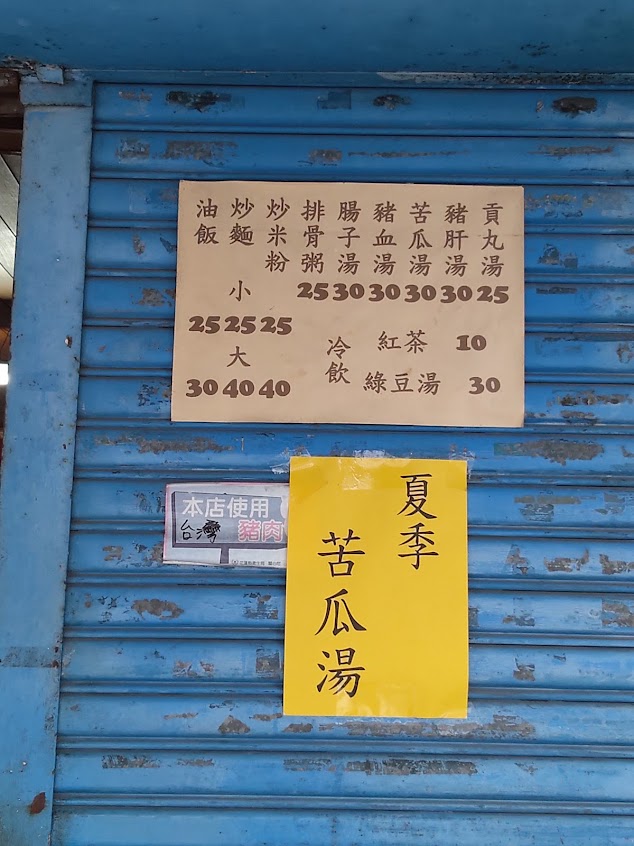 油飯
炒麵
炒米粉
排骨粥
腸子湯
豬血湯
苦瓜湯
豬肝湯
貢丸湯
小
25 25 25
大
30 40 40
25 30 30 30 30 25
冷飲
紅茶 10
綠豆湯 30
本店使用
台灣 豬肉
夏季
苦瓜湯